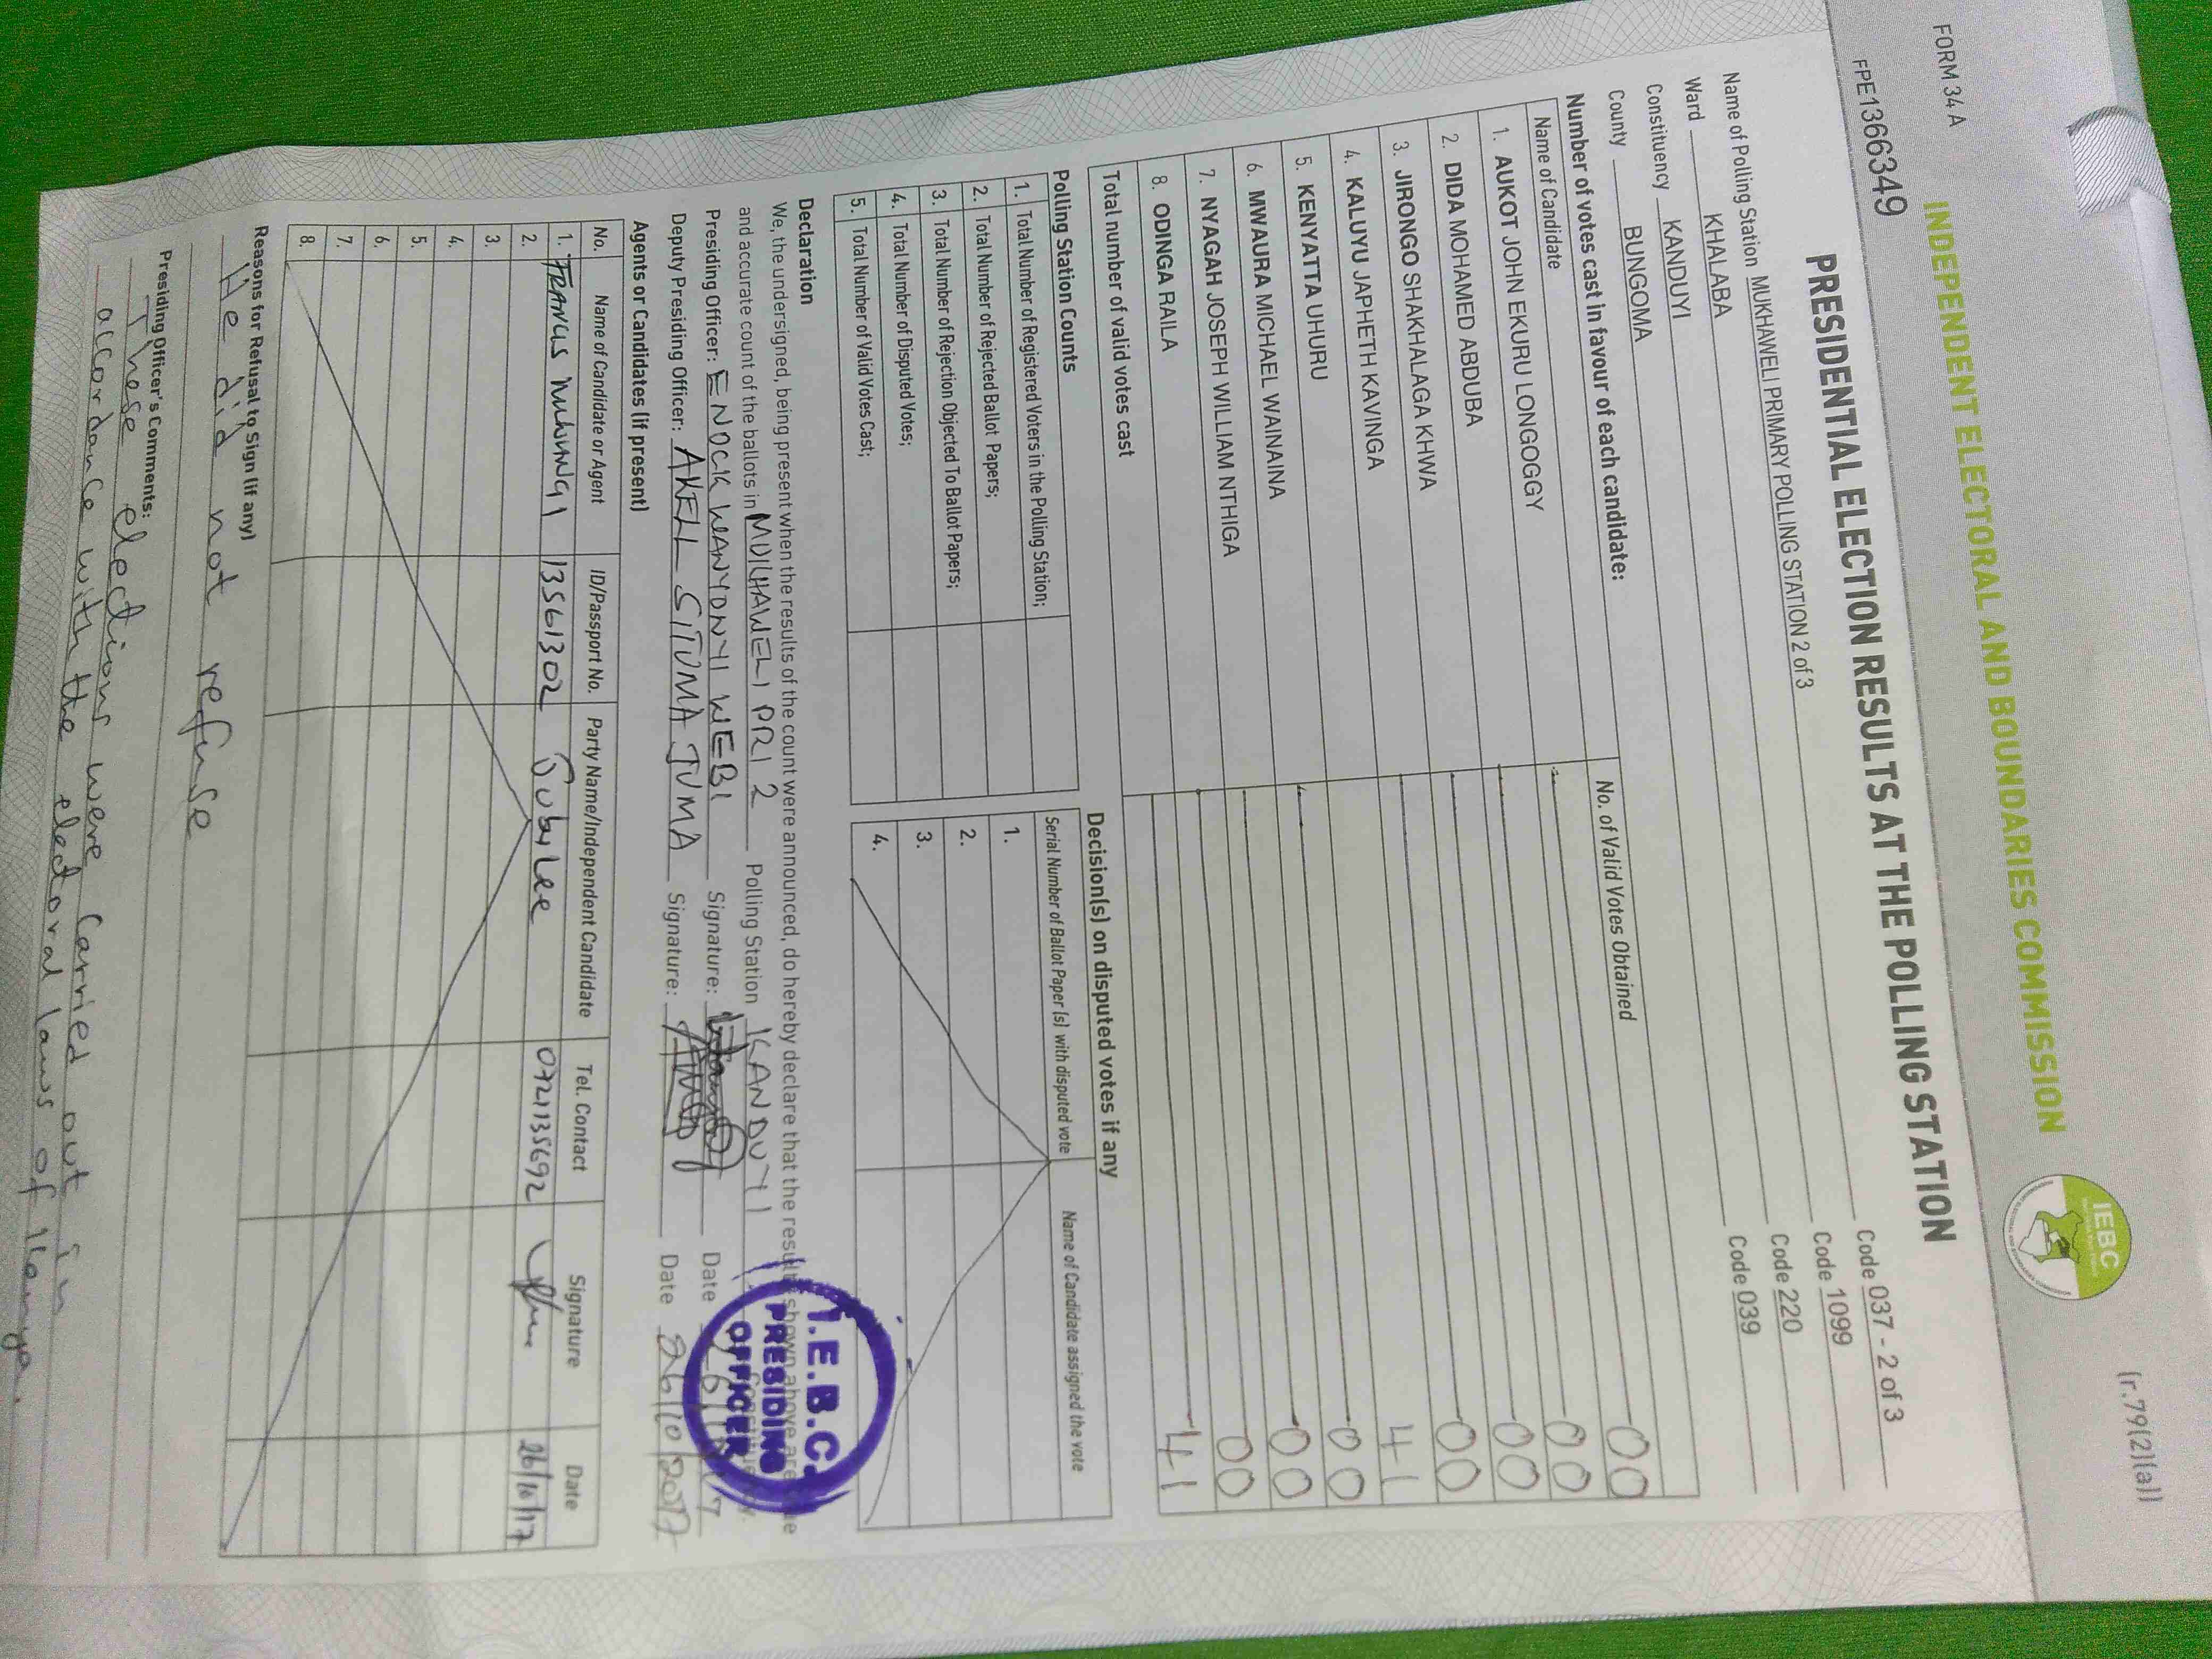 FORM 34 A
(r.79(2)(a))
INDEPENDENT ELECTORAL AND BOUNDARIES COMMISSION
IEBC
FPE1366349
PRESIDENTIAL ELECTION RESULTS AT THE POLLING STATION
Name of Polling Station MUKHAWELI PRIMARY POLLING STATION 2 of 3 Code 037 - 2 of 3
Ward KHALABA Code 1099
Constituency KANDUYI Code 220
County BUNGOMA Code 039
Number of votes cast in favour of each candidate:
Name of Candidate No. of Valid Votes Obtained
1. AUKOT JOHN EKURU LONGOGGY 00
2. DIDA MOHAMED ABDUBA 00
3. JIRONGO SHAKHALAGA KHWA 00
4. KALUYU JAPHETH KAVINGA 00
5. KENYATTA UHURU 41
6. MWAURA MICHAEL WAINAINA 00
7. NYAGAH JOSEPH WILLIAM NTHIGA 00
8. ODINGA RAILA 00
Total number of valid votes cast 41
Polling Station Counts
1. Total Number of Registered Voters in the Polling Station;
2. Total Number of Rejected Ballot Papers;
3. Total Number of Rejection Objected To Ballot Papers;
4. Total Number of Disputed Votes;
5. Total Number of Valid Votes Cast;
Decision(s) on disputed votes if any
Serial Number of Ballot Paper (s) with disputed vote Name of Candidate assigned the vote
1.
2.
3.
4.
Declaration
We, the undersigned, being present when the results of the count were announced, do hereby declare that the results shown above are true
and accurate count of the ballots in MUKHAWELI PRI 2 Polling Station KANDUYI Constituency.
Presiding Officer: ENOCK WANYONYI WEBI Signature: Date
Deputy Presiding Officer: AKELL SITUMA JUMA Signature: Date 26/10/2017
I.E.B.C.
PRESIDING
OFFICER
Agents or Candidates (if present)
No. Name of Candidate or Agent ID/Passport No. Party Name/Independent Candidate Tel. Contact Signature Date
1. FRANCIS 13561302 Jubilee 0721135692 26/10/17
2.
3.
4.
5.
6.
7.
8.
Reasons for Refusal to Sign (if any)
He did not refuse
Presiding Officer's Comments:
These elections were carried out in
accordance with the electoral laws of Kenya.